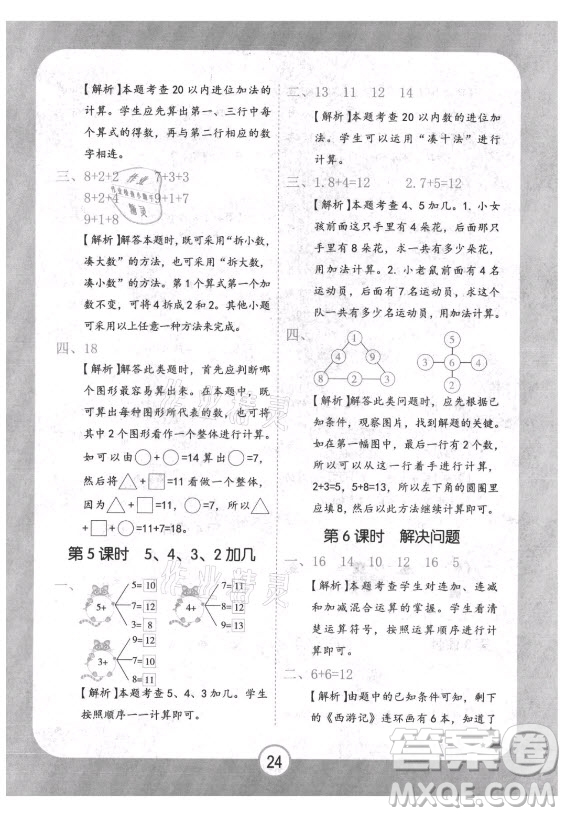 【解析】本题考查20以内进位加法的
计算。学生应先算出第一、三行中每
个算式的得数，再与第二行相应的数
字相连。
三、8+2+2 7+3+3
8+2+4 9+1+7
9+1+8
【解析】解答本题时，既可采用“拆小数，
凑大数”的方法，也可采用“拆大数，
凑小数”的方法。第1个算式第一个加
数不变，可将4拆成2和2。其他小题
可采用以上任意一种方法来解决。
四、18
【解析】解答此类题时，首先应判断哪
个图形最容易算出来。在本题中，不
能求出每种图形所代表的数，也可将
其中2个图形看作一个整体进行计算。
如可以由○+○=14算出○=7，
然后将△+□=11看作一个整体，
因为△+□=11，○=7，所以○+
□+△=11+7=18。
第5课时 5、4、3、2加几
一、
5+
5= 10
7= 12
3= 8
4+
7= 11
8= 12
9= 13
3+
9= 12
8= 11
7= 10
【解析】本题考查5、4、3加几。学生
按照顺序一一计算即可。
二、13 11 12 14
【解析】本题考查20以内数的进位加
法。学生可以运用“凑十法”进行
计算。
三、1.8+4=12 2.7+5=12
【解析】本题考查4、5加几。1.小女
孩前面这只手里有4朵花，后面这只
手里有8朵花，求一共有多少朵花，用
加法计算。2.小老鼠前面有4名运动
员，后面有7名运动员，求这个
队一共有多少名运动员，用加法计算。
四、
1
4
9
8
2
3
5
3
6
4
2
【解析】解答此类问题时，应先根据已
知条件，观察图片，找到解题的关键。
如第一幅图中，最下面一行有2个数，
所以可以从这一行着手进行计算，
2+3=5，5+8=13，所以左下的圆圈里
应填8，按此方法继续计算即可。
第6课时 解决问题
一、16 14 10 12 16 5
【解析】本题考查学生对连加、连减
和加减混合运算的掌握。学生应看
清楚运算符号，按照运算顺序进行计
算即可。
二、6+6=12
【解析】由题中的已知条件可知，剩下
的《西游记》连环画有6本，知道了
24
作业精灵
作业精灵
答案圈
MXQE.COM